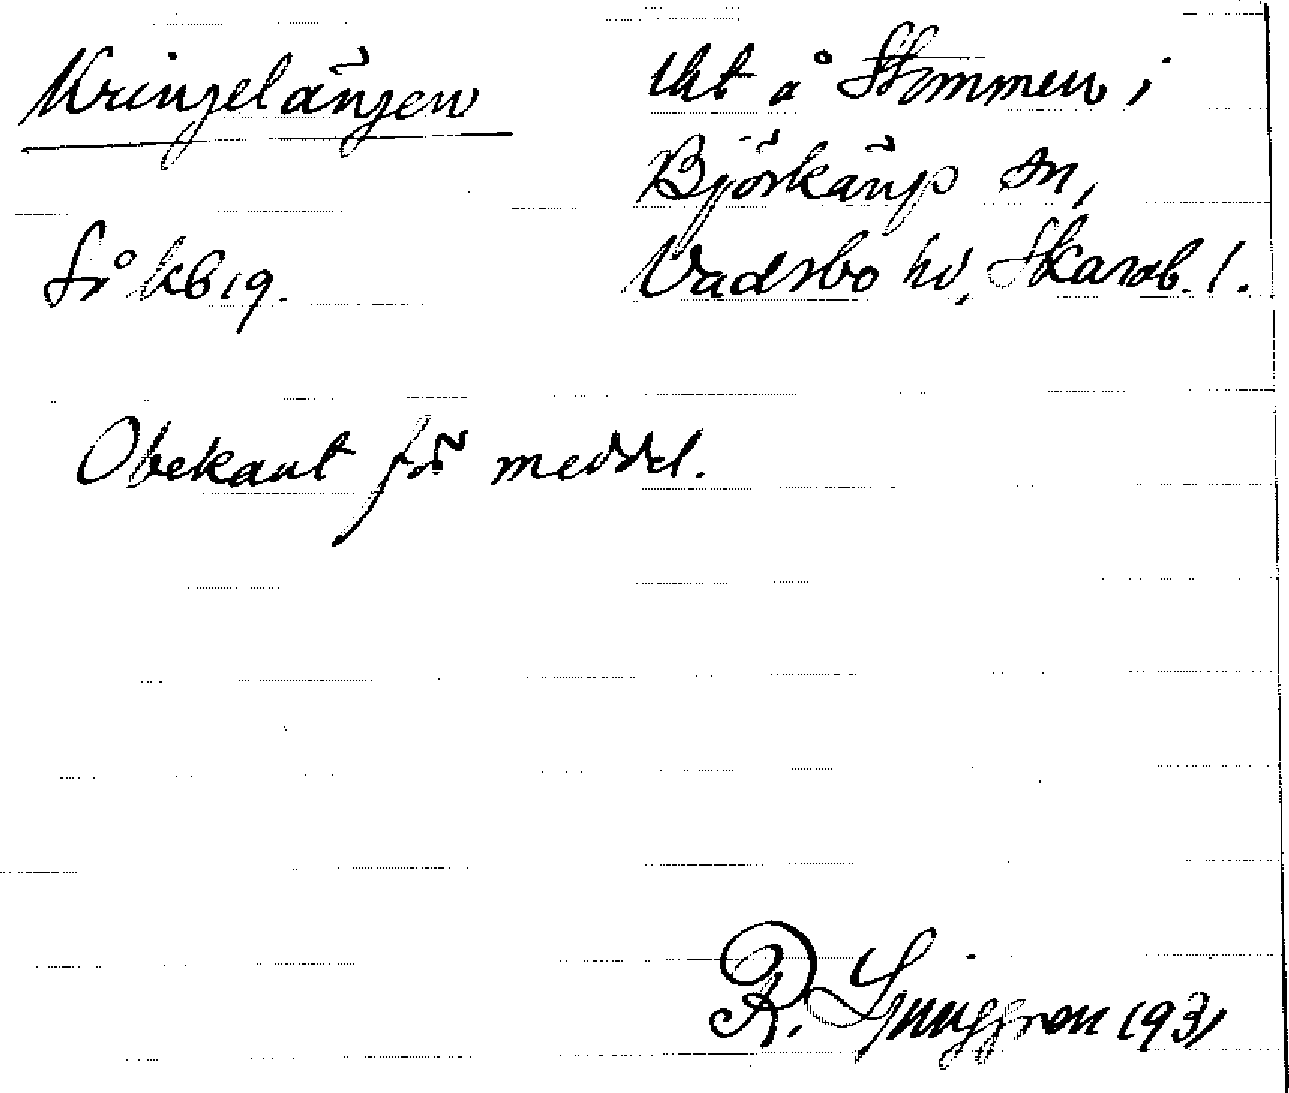 Kringelängen
så kb 19.
Utt å Stommen i
Björkäng sn,
Vadsbo hd, Skarab. l.
Obekant för meddel.
R. Ljunggren 1931